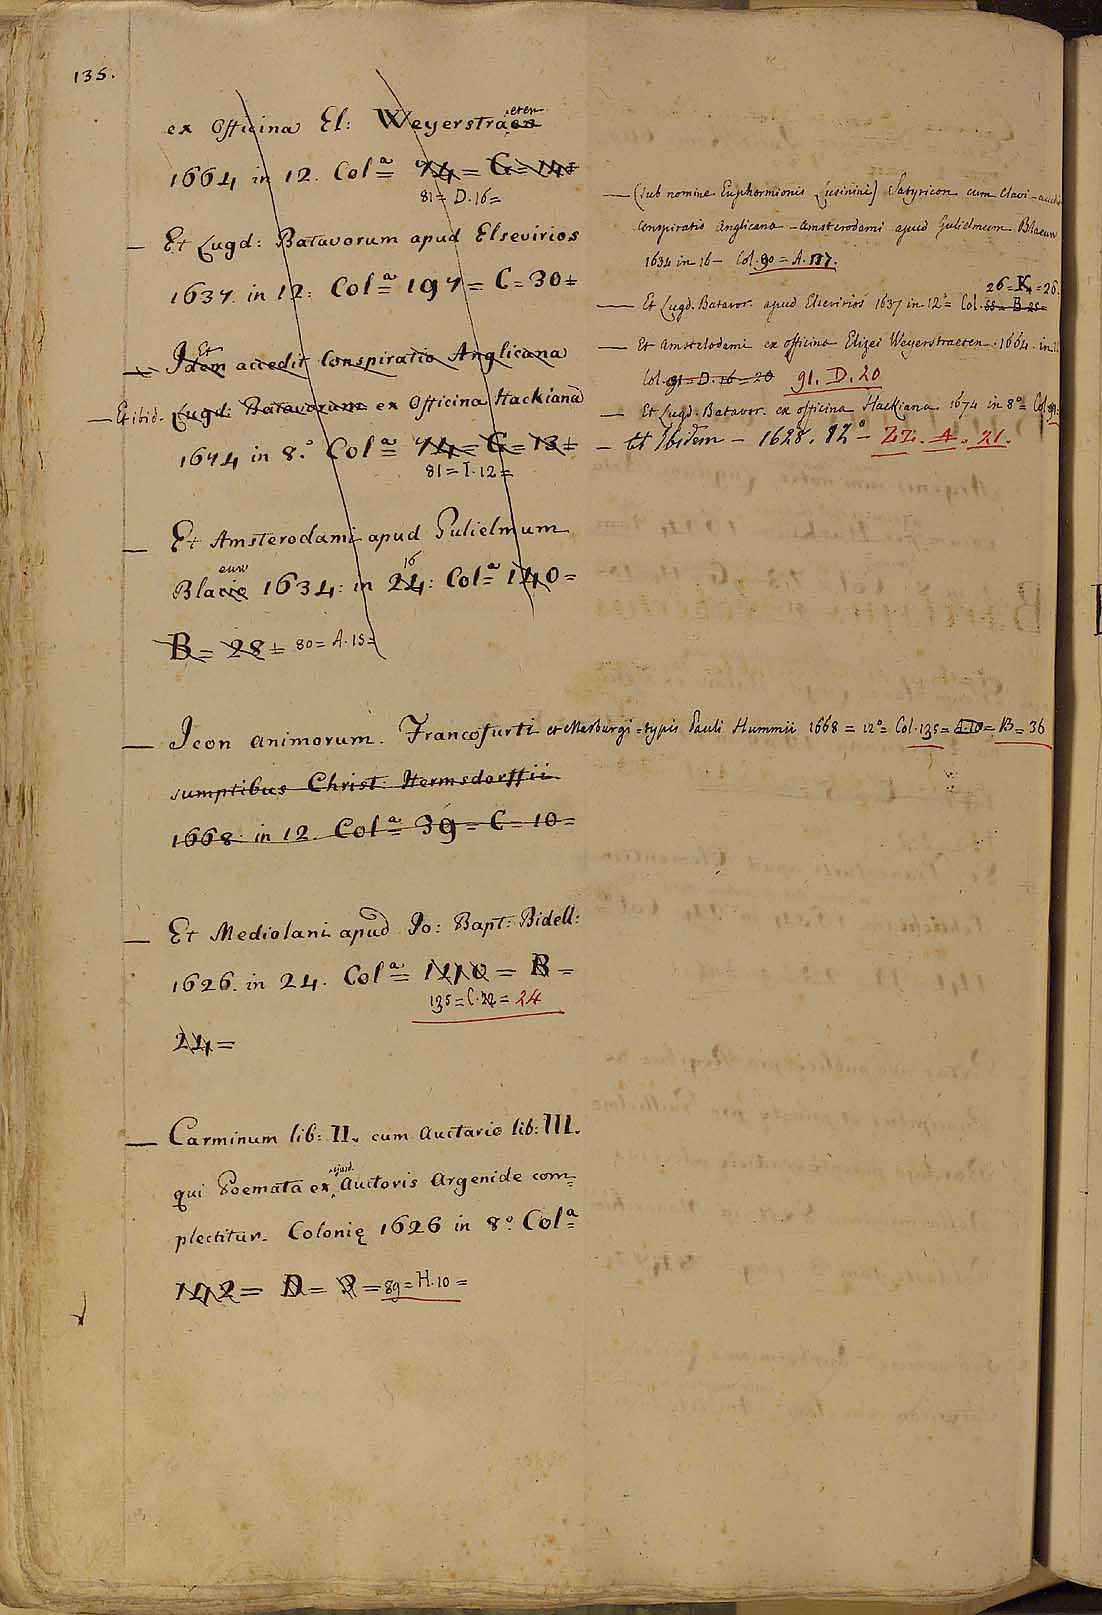 135.
ex Officina El: Weyerstraeten
eten
1664 in 12. Colª 74 = G = 14 =
81 = D. 16 =
— Et Lugd: Batavorum apud Elsevirios
1637. in 12: Colª 197 = C = 30 =
Et
— Idem accedit Conspiratio Anglicana
— Et ibid. Lugd: Batavorum ex Officina Hackiana
1674 in 8.º Colª 74 = G = 13 =
81 = I. 12 =
— Et Amsterodami apud Gulielmum
euw 16
Blavie 1634: in 24: Colª 140 =
B = 28 = 80 = A. 15 =
— Icon animorum. Francofurti et Marburgi = typis Pauli Hummii 1668 = 12º = Col. 135 = A. 10 = B = 36
sumptibus Christ: Hermsdorffii
1668. in 12. Colª 39 = C = 10 =
— Et Mediolani apud Jo: Bapt: Bidell:
1626. in 24. Colª 140 = B =
135 = C. 22 = 24
24 =
— Carminum lib: II. cum Auctario lib: III.
ejusd.
qui Poemata ex Auctoris Argenide com=
plectitur. Colonię 1626 in 8º. Colª
142 = D = 2 = 89 = H. 10 =
— (sub nomine Euphormionis Lusinini) Satyricon cum Clavi
Conspiratio Anglicana – Amsterodami apud Gulielmum Blaeuw
1634 in 16 – Col. 90 = A. 17.
26 = K = 26.
— Et Lugd. Batavor. apud Elsevirios 1637 in 12º = Col. 88 = B 25 =
— Et Amstelodami ex officina Elizei Weyerstraeten. 1664. in
Col. 91 = D. 16 = 20 91. D. 20
— Et Lugd. Batavor. ex officina Hackiana 1674 in 8º = Col. 91.
— Et Ibidem – 1628. 12º – ZZ. A. 21.